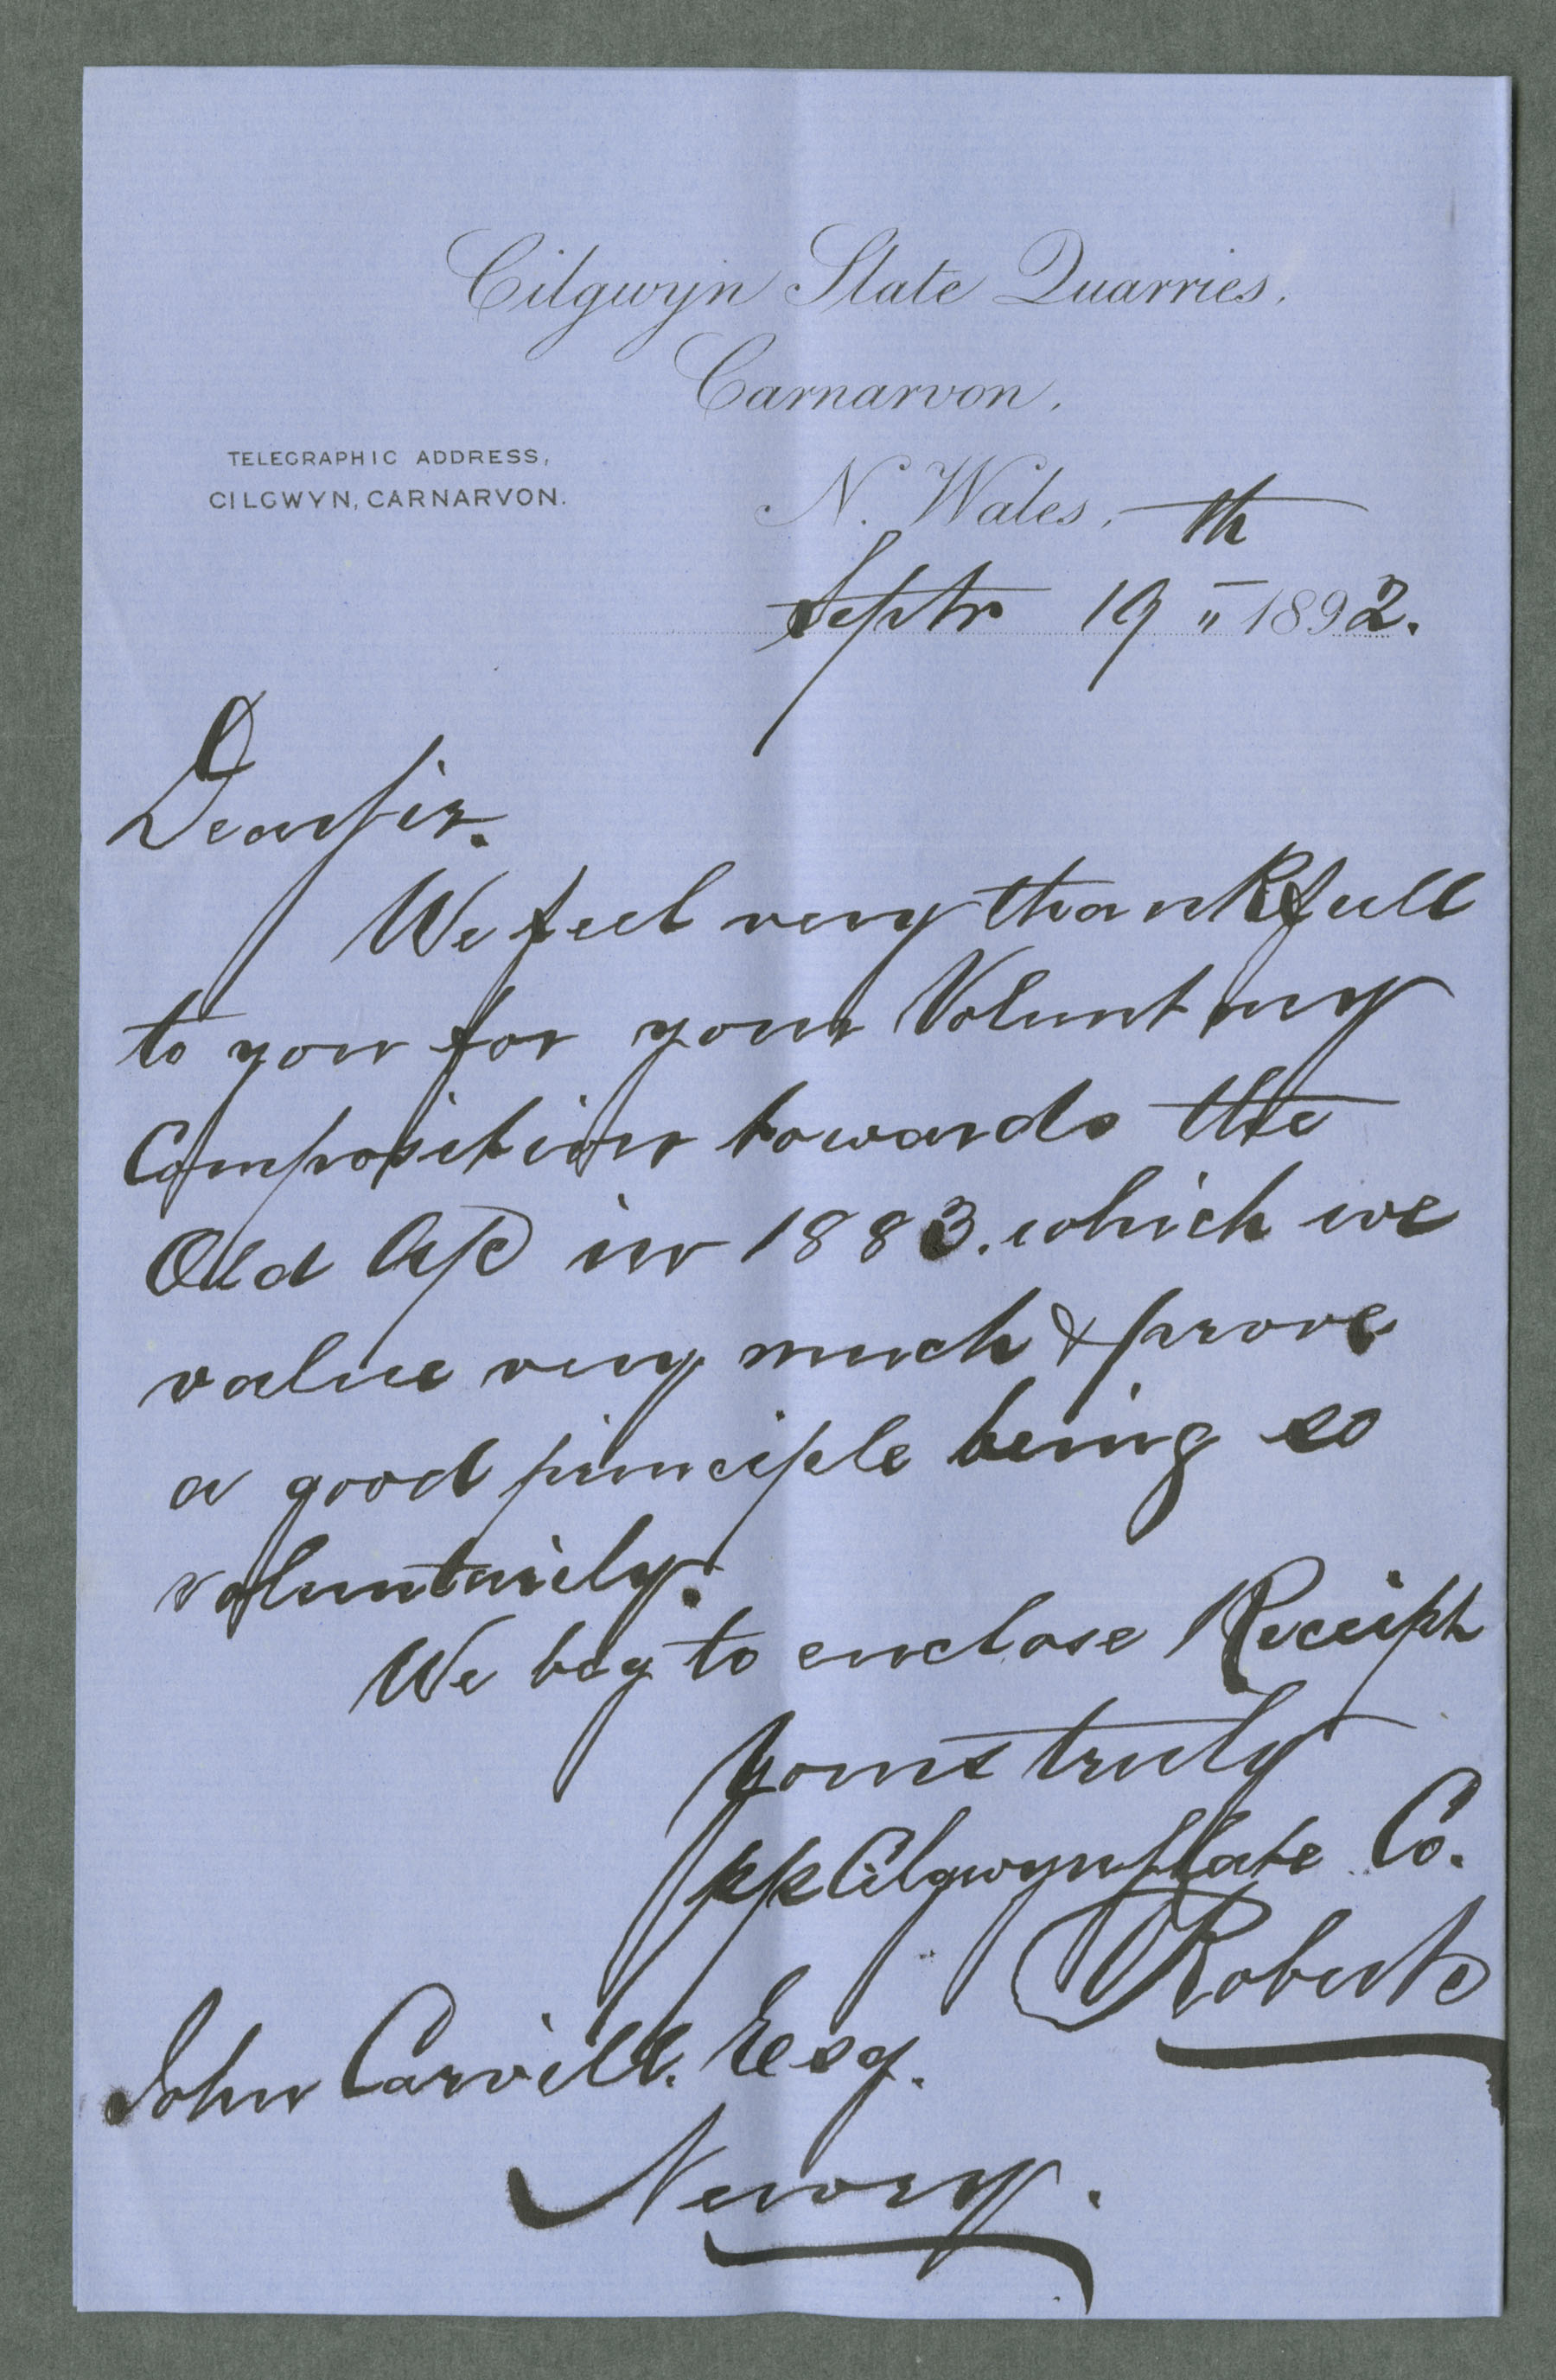 Cilgwyn Slate Quarries,
Carnarvon,
TELEGRAPHIC ADDRESS,
CILGWYN, CARNARVON.
N. Wales,
Septr 19th 1892.
Dear Sir.
We feel very thankfull
to you for your Voluntary
Composition towards the
Old A/c in 1883. which we
value very much & prove
a good principle being so
voluntarily.
We beg to enclose Receipt
Yours truly
pp Cilgwyn Slate Co.
Roberts
John Carvill. Esq.
Newry.